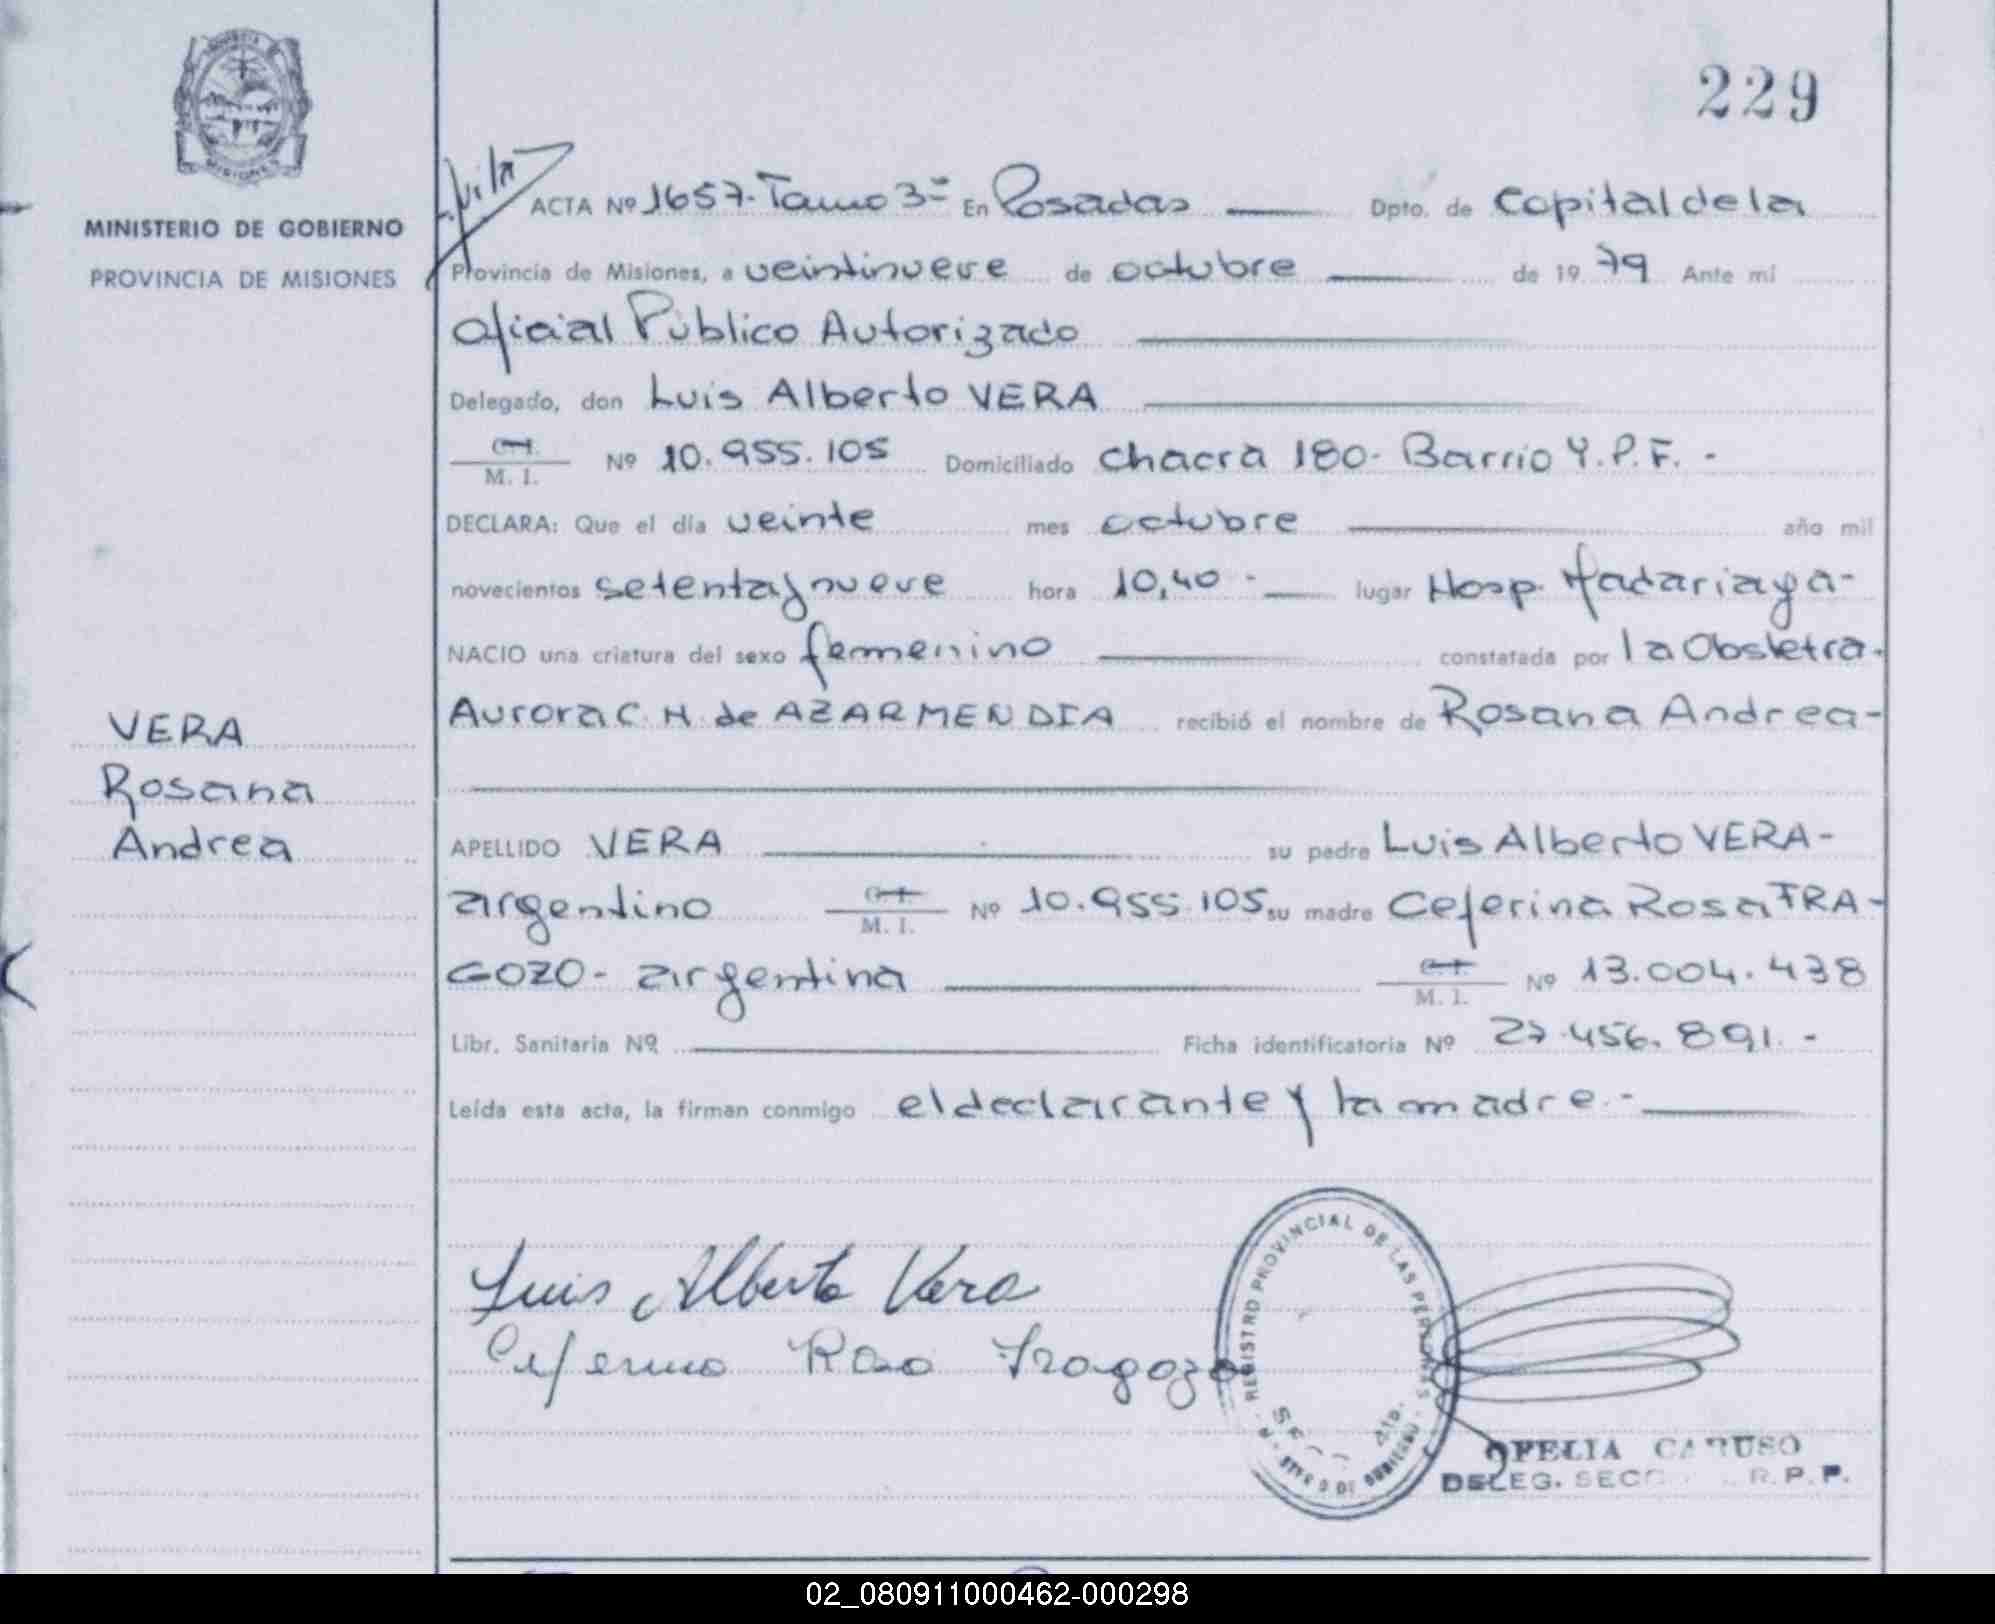 229
MINISTERIO DE GOBIERNO
PROVINCIA DE MISIONES
ACTA Nº 1657. Tomo 3º En Posadas Dpto. de Capital de la
Provincia de Misiones, a veintinueve de octubre de 1979 Ante mí
Oficial Público Autorizado
Delegado, don Luis Alberto VERA
M. I. Nº 10.955.105 Domiciliado chacra 180. Barrio Y.P.F. -
DECLARA: Que el día veinte mes octubre año mil
novecientos setenta y nueve hora 10,40 - lugar Hosp. Madariaga -
NACIO una criatura del sexo femenino constatada por la Obstetra -
Aurora C. H. de AZARMENDIA recibió el nombre de Rosana Andrea -
VERA
Rosana
Andrea
APELLIDO VERA su padre Luis Alberto VERA -
argentino M. I. Nº 10.955.105 su madre Ceferina Rosa FRA-
GOZO - argentina M. I. Nº 13.004.438
Libr. Sanitaria Nº Ficha identificatoria Nº 27.456.891. -
Leída esta acta, la firman conmigo el declarante y la madre. -
Luis Alberto Vera
Ceferina Rosa Fragozo
REGISTRO PROVINCIAL DE LAS PERSONAS
OFELIA CARUSO
DELEG. SECC R.P.P.
02_080911000462-000298